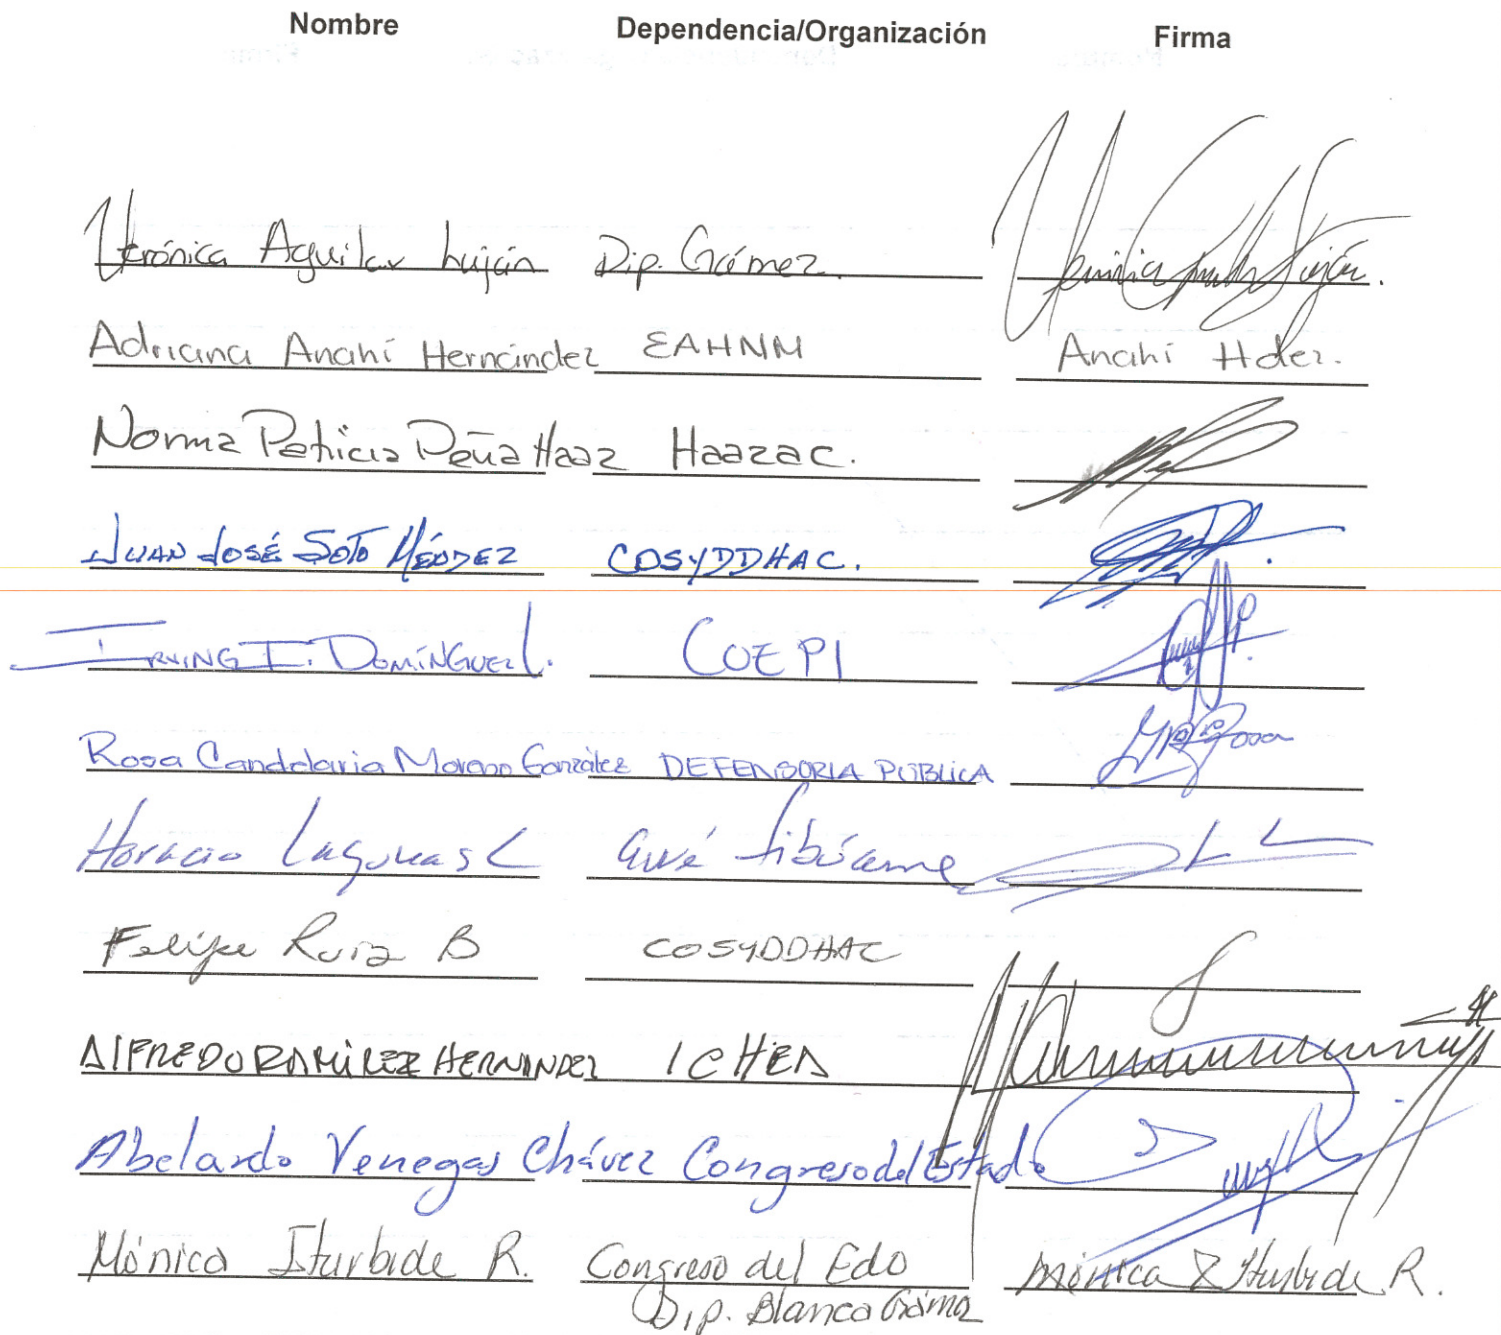 Nombre Dependencia/Organización Firma
Verónica Aguilar Luján Dip. Gámez.
Adriana Anahí Hernández EAHNM Anahí Hdez.
Norma Patricia Peña Haaz Haazac.
JUAN JOSÉ SOTO MÉNDEZ COSYDDHAC.
IRVING I. DOMÍNGUEZ L. COEPI
Rosa Candelaria Moreno González DEFENSORIA PÚBLICA
Horacio Lagunas C
Felipe Ruiz B COSYDDHAC
ALFREDO RAMÍREZ HERNANDEZ ICHEA
Abelardo Venegas Chávez Congreso del Estado
Mónica Iturbide R. Congreso del Edo Mónica Iturbide R.
Dip. Blanca Gámez